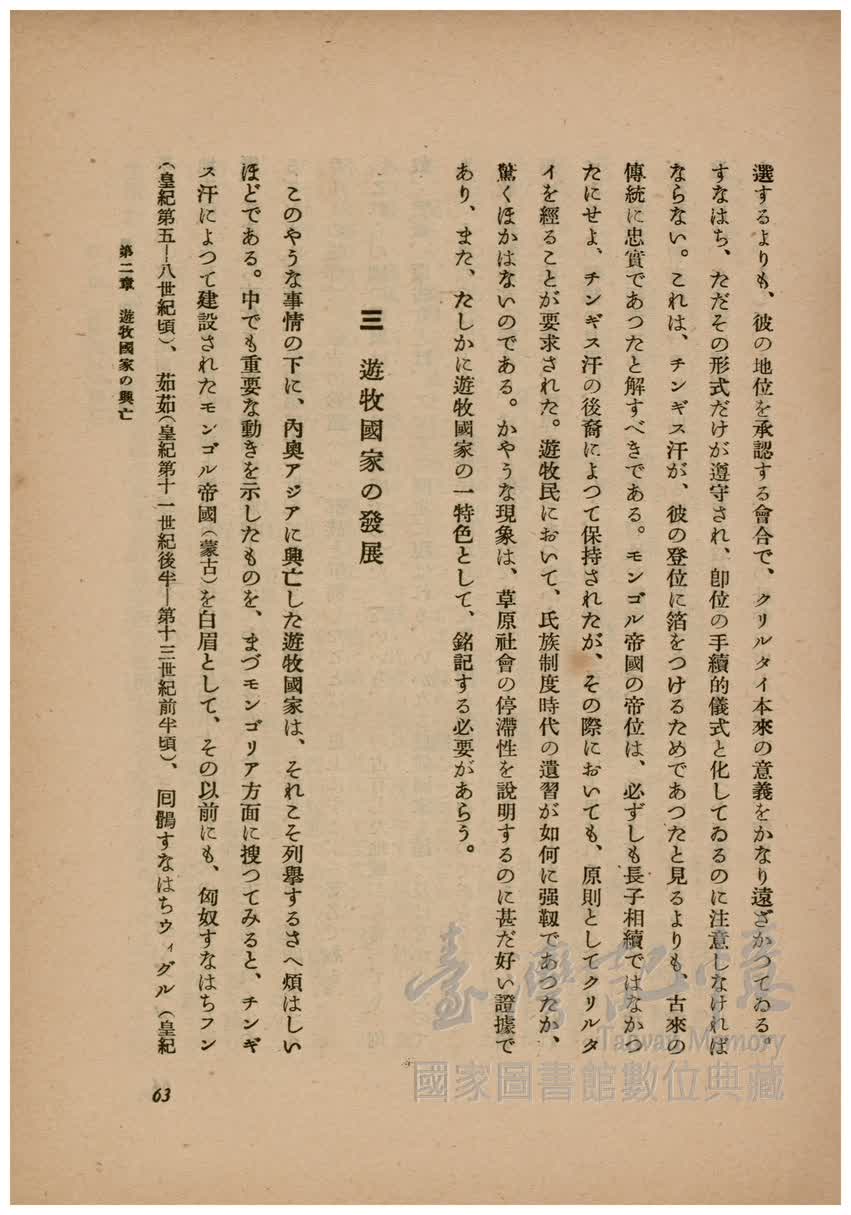 選するよりも、彼の地位を承認する會合で、クリルタイ本來の意義をかなり遠ざかつてゐる。
すなはち、ただその形式だけが遵守され、卽位の手續的儀式と化してゐるのに注意しなければ
ならない。これは、チンギス汗が、彼の登位に箔をつけるためであつたと見るよりも、古來の
傳統に忠實であつたと解すべきである。モンゴル帝國の帝位は、必ずしも長子相續ではなかつ
たにせよ、チンギス汗の後裔によつて保持されたが、その際においても、原則としてクリルタ
イを經ることが要求された。遊牧民において、氏族制度時代の遺習が如何に强靱であつたか、
驚くほかはないのである。かやうな現象は、草原社會の停滯性を說明するのに甚だ好い證據で
あり、また、たしかに遊牧國家の一特色として、銘記する必要があらう。
三 遊牧國家の發展
このやうな事情の下に、內奧アジアに興亡した遊牧國家は、それこそ列擧するさへ煩はしい
ほどである。中でも重要な動きを示したものを、まづモンゴリア方面に搜つてみると、チンギ
ス汗によつて建設されたモンゴル帝國(蒙古)を白眉として、その以前にも、匈奴すなはちフン
(皇紀第五—八世紀頃)、茹茹(皇紀第十一世紀後半—第十三世紀前半頃)、回鶻すなはちウィグル(皇紀
第二章 遊牧國家の興亡
63
臺灣記憶
Taiwan Memory
國家圖書館數位典藏